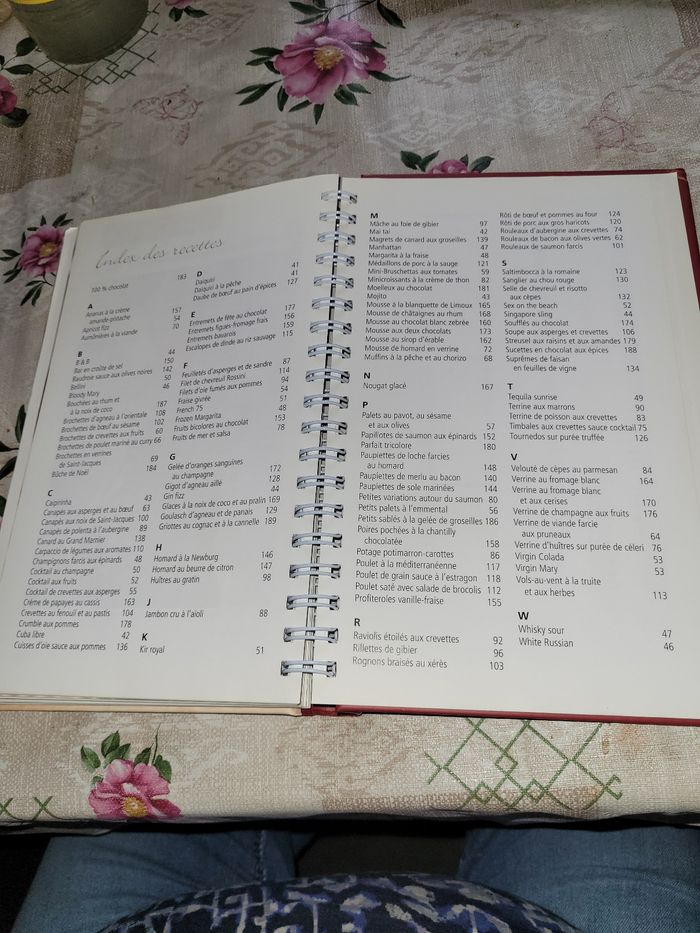 Index des recettes
100 % chocolat 183
A
Ananas à la crème
amande-pistache 157
Apricot fizz 54
Aumônières à la viande 70
B
B & B 44
Bar en croûte de sel 150
Baudroie sauce aux olives noires 142
Bellini 50
Bloody Mary 46
Bouchées au thum et
à la noix de coco 187
Brochettes d'agneau à l'orientale 108
Brochettes de bœuf au sésame 102
Brochettes de crevettes aux fruits 60
Brochettes de poulet mariné au curry 66
Brochettes en verrines
de Saint-Jacques 69
Bûche de Noël 184
C
Caipirinha 43
Canapés aux asperges et au bœuf 63
Canapés aux noix de Saint-Jacques 100
Canapés de polenta à l'aubergine 89
Canard au Grand Marnier 138
Carpaccio de légumes aux aromates 110
Champignons farcis aux épinards 48
Cocktail au champagne 50
Cocktail aux fruits 52
Cocktail de crevettes aux asperges 55
Crème de papayes au cassis 163
Crevettes au fenouil et au pastis 104
Crumble aux pommes 178
Cuba libre 42
Cuisses d'oie sauce aux pommes 136
D
Daïquiri 41
Daïquiri à la pêche 41
Daube de bœuf au pain d'épices 127
E
Entremets de fête au chocolat 177
Entremets figues-fromage frais 156
Entremets bavarois 159
Escalopes de dinde au riz sauvage 115
F
Feuilletés d'asperges et de sandre 87
Filet de chevreuil Rossini 114
Filets d'oie fumés aux pommes 94
Fraise givrée 54
French 75 51
Frozen Margarita 48
Fruits bicolores au chocolat 153
Fruits de mer et salsa 78
G
Gelée d'oranges sanguines
au champagne 172
Gigot d'agneau aillé 128
Gin fizz 44
Glaces à la noix de coco et au pralin 169
Goulasch d'agneau et de panais 129
Griottes au cognac et à la cannelle 189
H
Homard à la Newburg 146
Homard au beurre de citron 147
Huîtres au gratin 98
J
Jambon cru à l'aïoli 88
K
Kir royal 51
M
Mâche au foie de gibier 97
Mai tai 42
Magrets de canard aux groseilles 139
Manhattan 47
Margarita à la fraise 48
Médaillons de porc à la sauge 121
Mini-Bruschettas aux tomates 59
Minicroissants à la crème de thon 82
Moelleux au chocolat 181
Mojito 43
Mousse à la blanquette de Limoux 165
Mousse de châtaignes au rhum 168
Mousse au chocolat blanc zébrée 160
Mousse aux deux chocolats 173
Mousse au sirop d'érable 162
Mousse de homard en verrine 72
Muffins à la pêche et au chorizo 68
N
Nougat glacé 167
P
Palets au pavot, au sésame
et aux olives 57
Papillotes de saumon aux épinards 152
Parfait tricolore 180
Paupiettes de loche farcies
au homard 148
Paupiettes de merlu au bacon 140
Paupiettes de sole marinées 144
Petites variations autour du saumon 80
Petits palets à l'emmental 56
Petits sablés à la gelée de groseilles 186
Poires pochées à la chantilly
chocolatée 158
Potage potimarron-carottes 86
Poulet à la méditerranéenne 117
Poulet de grain sauce à l'estragon 118
Poulet sauté avec salade de brocolis 112
Profiteroles vanille-fraise 155
R
Raviolis étoilés aux crevettes 92
Rillettes de gibier 96
Rognons braisés au xérès 103
Rôti de bœuf et pommes au four 124
Rôti de porc aux gros haricots 120
Rouleaux d'aubergine aux crevettes 74
Rouleaux de bacon aux olives vertes 62
Rouleaux de saumon farcis 101
S
Saltimbocca à la romaine 123
Sanglier au chou rouge 130
Selle de chevreuil et risotto
aux cèpes 132
Sex on the beach 52
Singapore sling 44
Soufflés au chocolat 174
Soupe aux asperges et crevettes 106
Streusel aux raisins et aux amandes 179
Sucettes en chocolat aux épices 188
Suprêmes de faisan
en feuilles de vigne 134
T
Tequila sunrise 49
Terrine aux marrons 90
Terrine de poisson aux crevettes 83
Timbales aux crevettes sauce cocktail 75
Tournedos sur purée truffée 126
V
Velouté de cèpes au parmesan 84
Verrine au fromage blanc 164
Verrine au fromage blanc
et aux cerises 170
Verrine de champagne aux fruits 176
Verrine de viande farcie
aux pruneaux 64
Verrine d'huîtres sur purée de céleri 76
Virgin Colada 53
Virgin Mary 53
Vols-au-vent à la truite
et aux herbes 113
W
Whisky sour 47
White Russian 46